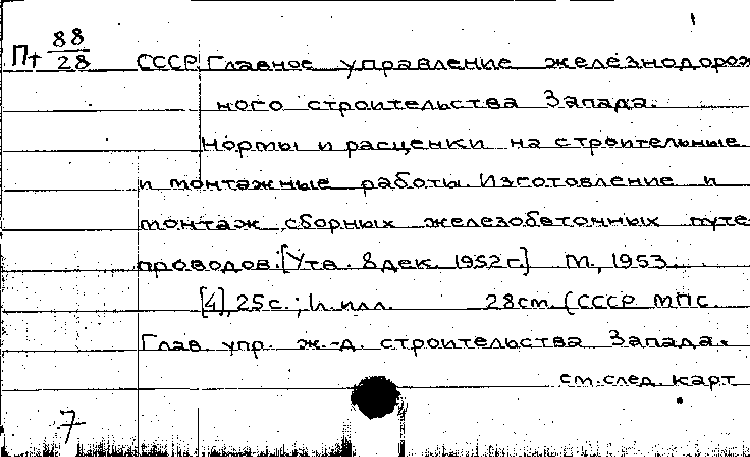 Пт 88/28 СССР Главное управление железнодорож
ного строительства Запада.
Нормы и расценки на строительные
и монтажные работы. Изготовление и
монтаж сборных железобетонных путе
проводов. [Утв. 8 дек. 1952 г.] М., 1953.
[4], 25 с.; илл. 28 см. (СССР МПС.
Глав. упр. ж.-д. строительства Запада.
см. след. карт
7